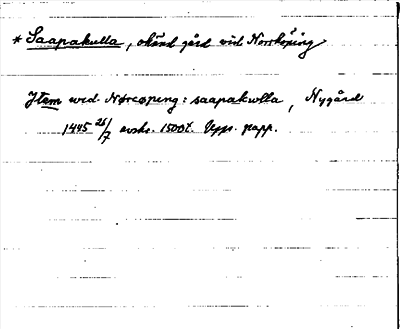 * Saapakulla, okänd gård vid Norrköping
Jtem wid. Nørcøping: saapakwlla, Nygård
1445 26/7 avskr. 1500t. Upps. papp.